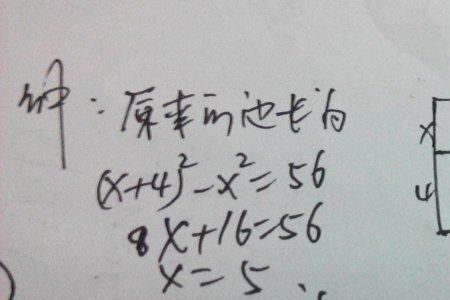 解:原来的边长为
(x+4)²-x²=56
8x+16=56
x=5
x
4